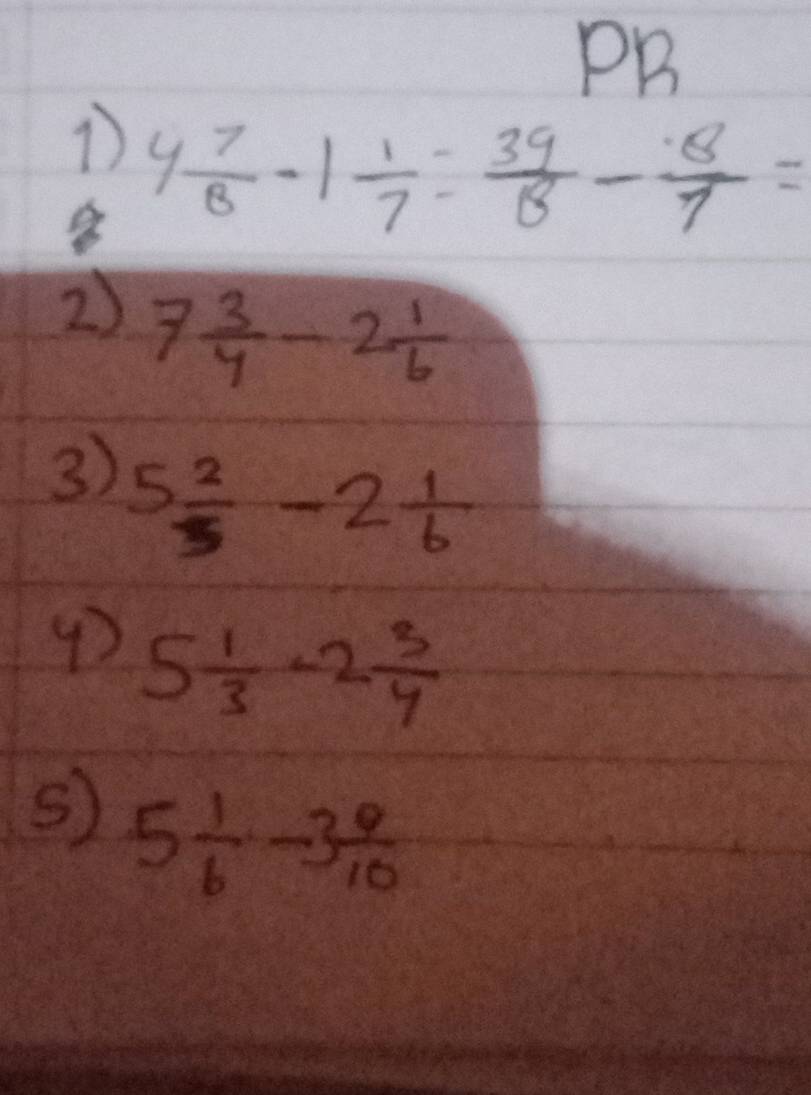 PR
1) 4 7/8 - 1 1/7 = 39/8 - 8/7 =
2) 7 3/4 - 2 1/6
3) 5 2/5 - 2 1/6
4) 5 1/3 - 2 3/4
5) 5 1/6 - 3 9/10